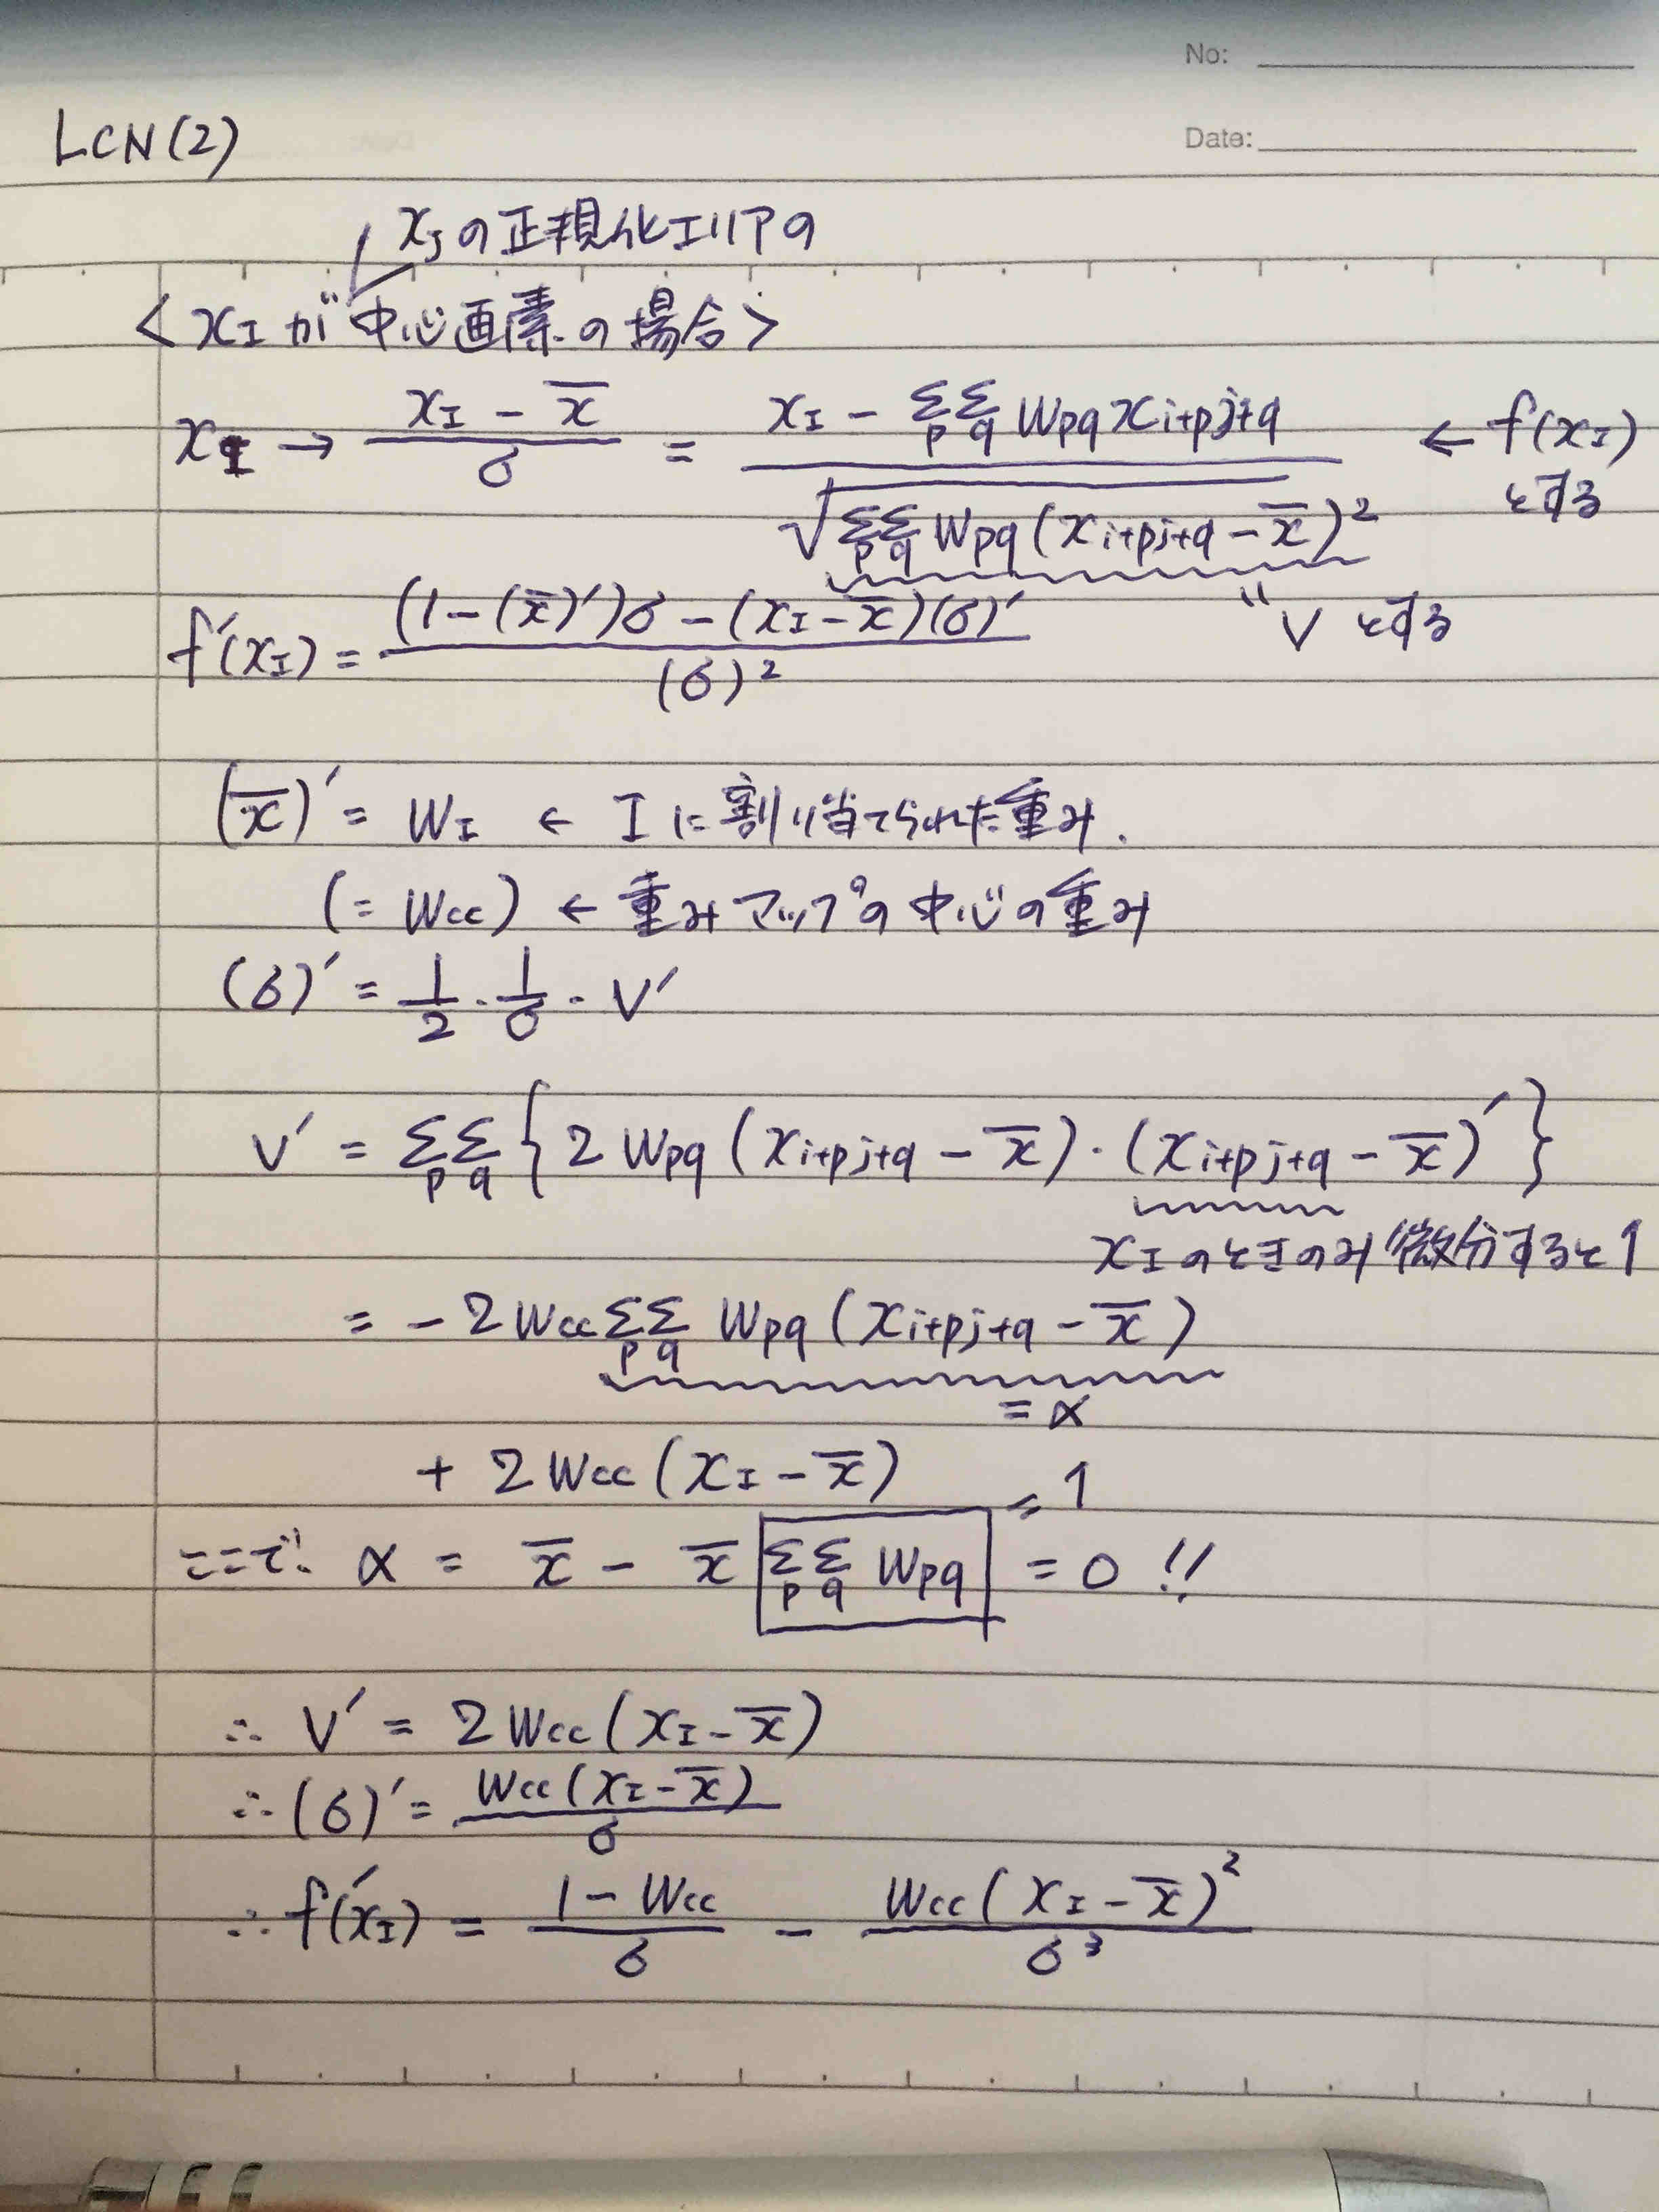 No:
Date:
LCN(2)
x_J の正規化エリアの
<x_I が中心画素の場合>
x_I → (x_I - x̄)/σ = (x_I - ΣΣ_{p q} W_{pq} x_{i+p j+q})/√(ΣΣ_{p q} W_{pq}(x_{i+p j+q} - x̄)²) ← f(x_I)
とする
"V とする
f'(x_I) = ((1-(x̄)')σ - (x_I - x̄)(σ)')/(σ)²
(x̄)' = W_I ← I に割り当てられた重み.
(= Wcc) ← 重みマップの中心の重み
(σ)' = 1/2 · 1/σ · V'
V' = ΣΣ_{p q} {2 W_{pq}(x_{i+p j+q} - x̄)·(x_{i+p j+q} - x̄)'}
x_I のときのみ微分すると1
= - 2 Wcc ΣΣ_{p q} W_{pq}(x_{i+p j+q} - x̄)
= α
+ 2 Wcc (x_I - x̄)
= 1
ここで α = x̄ - x̄ ΣΣ_{p q} W_{pq} = 0 !!
∴ V' = 2 Wcc (x_I - x̄)
∴ (σ)' = Wcc (x_I - x̄)/σ
∴ f'(x_I) = (1 - Wcc)/σ - Wcc (x_I - x̄)²/σ³